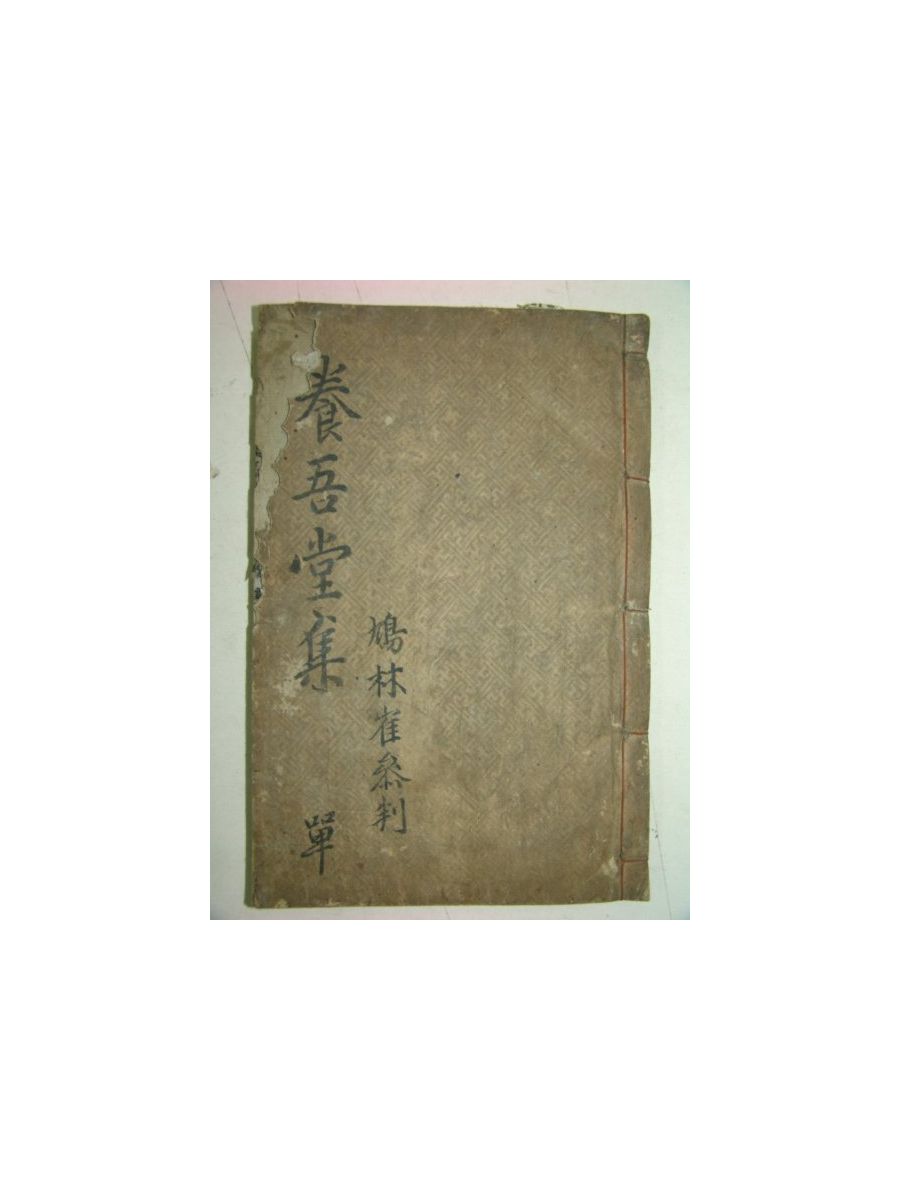 養吾堂集 單
鳩林崔叅判